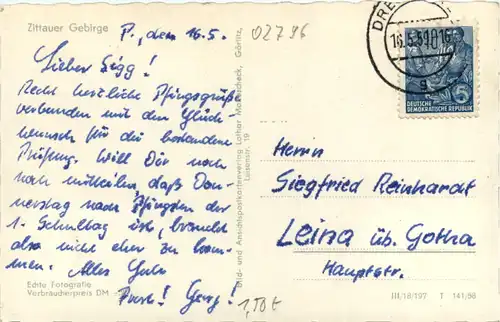 Zittauer Gebirge
P., dem 16.5.
02796
Lieber Sigg!
Recht herzliche Pfingstgrüße
verbunden mit dem Glück-
wunsch für die bestandene
Prüfung. Will Dir noch
noch mitteilen, daß Don-
nerstag nach Pfingsten der
1. Schultag ist, brauchst
also nicht eher zu kom-
men. Alles Gute
Echte Fotografie
Verbraucherpreis DM
1,50 €
Bild- und Ansichtspostkartenverlag Lothar Görlitz,
19
DRE
16.5.59 10 16
g
DEUTSCHE
DEMOKRATISCHE REPUBLIK
5
Herrn
Siegfried Reinhardt
Leina üb. Gotha
Hauptstr.
III/18/197 T 141/58